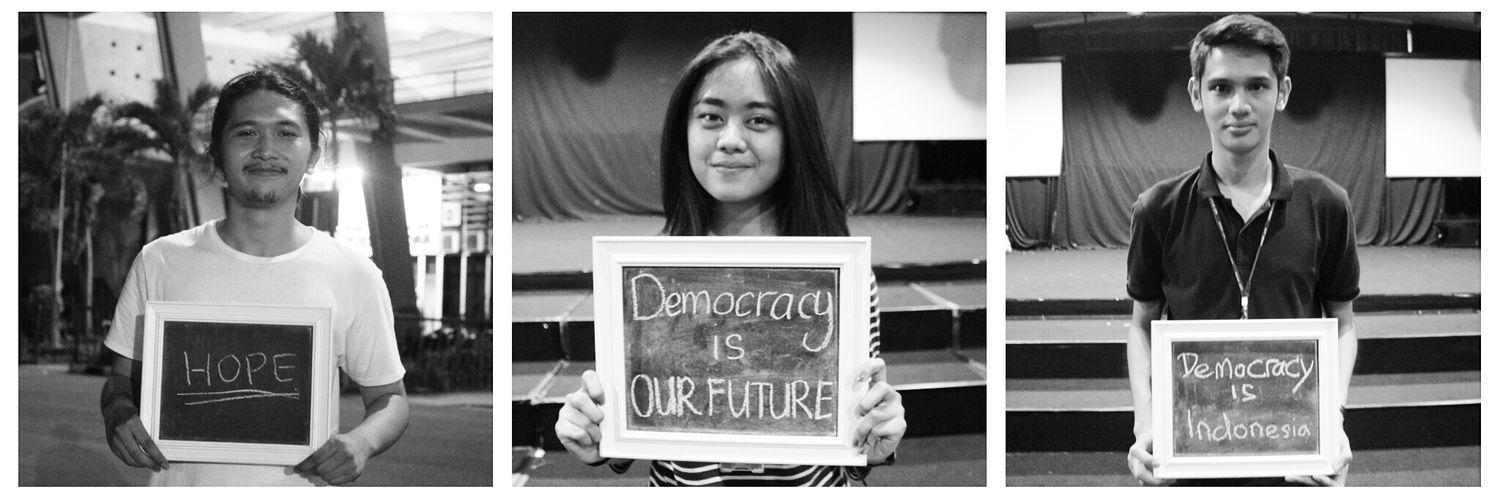 HOPE
Democracy
is
OUR FUTURE
Democracy
is
Indonesia